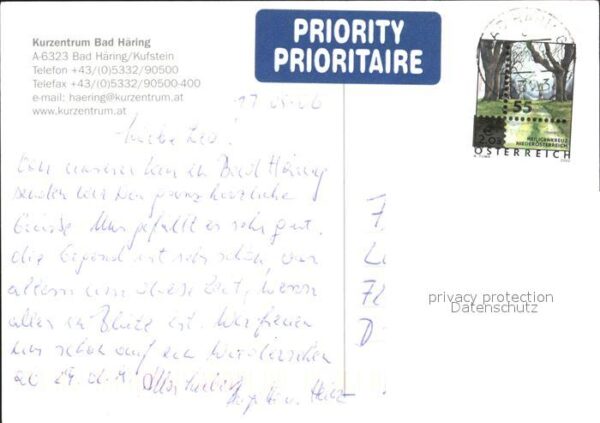 Kurzentrum Bad Häring
A-6323 Bad Häring/Kufstein
Telefon +43/(0)5332/90500
Telefax +43/(0)5332/90500-400
e-mail: haering@kurzentrum.at
www.kurzentrum.at
PRIORITY
PRIORITAIRE
55
2.03
HEILIGENKREUZ
NIEDERÖSTERREICH
ÖSTERREICH
Liebe
Von unserer Kur in Bad Häring
senden wir Dir ganz herzliche
Grüße. Uns gefällt es sehr gut.
die Gegend ist sehr schön, vor
allem um diese Zeit, wenn
alles in Blüte ist. Wir freuen
uns schon auf ein Wiedersehen
ab 29. d. M.
privacy protection
Datenschutz